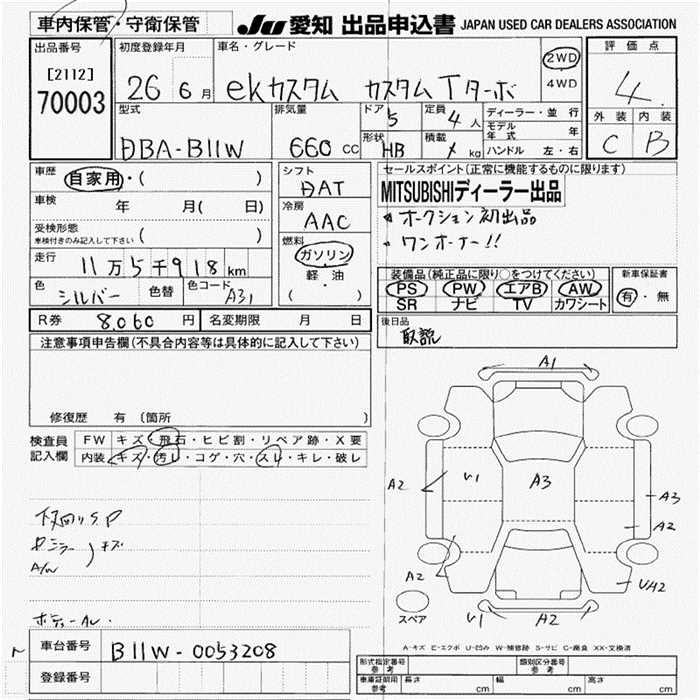 車内保管・守衛保管
JU 愛知 出品申込書 JAPAN USED CAR DEALERS ASSOCIATION
出品番号 初度登録年月 車名・グレード 2WD 評価点
[2112] 26 6月 ekカスタム カスタムTターボ 4WD 4
70003
型式 排気量 ドア 5 定員 4人 ディーラー・並行 外装 内装
DBA-B11W 660cc 形状 HB 積載 kg モデル年式 年 C B
ハンドル 左・右
車歴 自家用・( ) シフト DAT セールスポイント(正常に機能するものに限ります)
車検 年 月( 日) 冷房 AAC MITSUBISHIディーラー出品
受検形態 オークション初出品
車検付きのみ記入して下さい ( ) 燃料 ガソリン ワンオーナー!!
走行 11万5千918km 軽・油 装備品(純正品に限り○をつけてください) 新車保証書
( ) PS PW エアB AW 有・無
色 シルバー 色替 色コード A31 SR ナビ TV カワシート
R券 8,060円 名変期限 月 日 後日品
注意事項申告欄(不具合内容等は具体的に記入して下さい) 取説
修復歴 有 〔箇所 〕
検査員 FW キズ・飛石・ヒビ割・リペア跡・X要
記入欄 内装 キズ・汚レ・コゲ・穴・スレ・キレ・破レ
A1
U1 A3
A2 A3
A2
下回りSP
ミラー キズ
A/W
A2 UA2
スペア U1 A2
A-キズ E-エクボ U-凹み W-補修跡 S-サビ C-腐食 XX-交換済
車台番号 B11W-0053208
登録番号
形式指定番号 参考 類別区分番号 参考
車庫証明用 参考 長さ cm 幅 cm 高さ cm